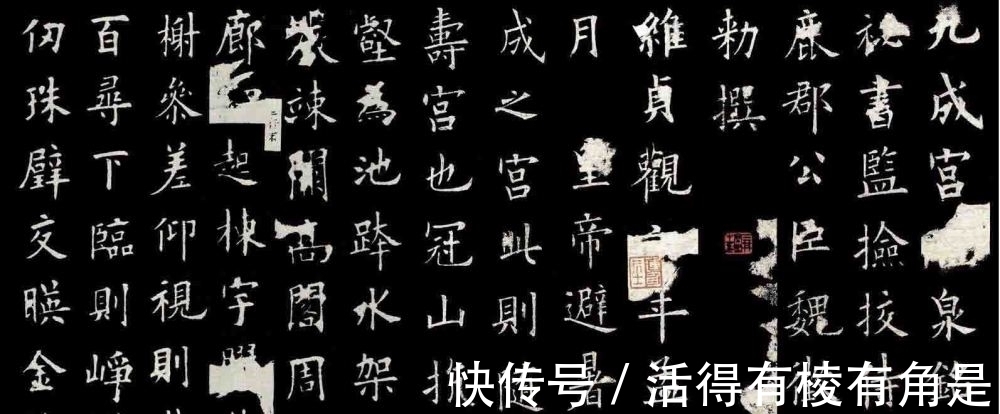 九成宮泉銘
祕書監撿挍侍
鹿郡公臣魏徵
勑撰
維貞觀六年孟
月皇帝避暑
成之宮此則隨
壽宮也冠山抗
壑為池跨水架
巖竦闕高閣周
廊四起棟宇膠
榭參差仰視則
百尋下臨則崢
仞珠璧交暎金
快传号 / 活得有棱有角是